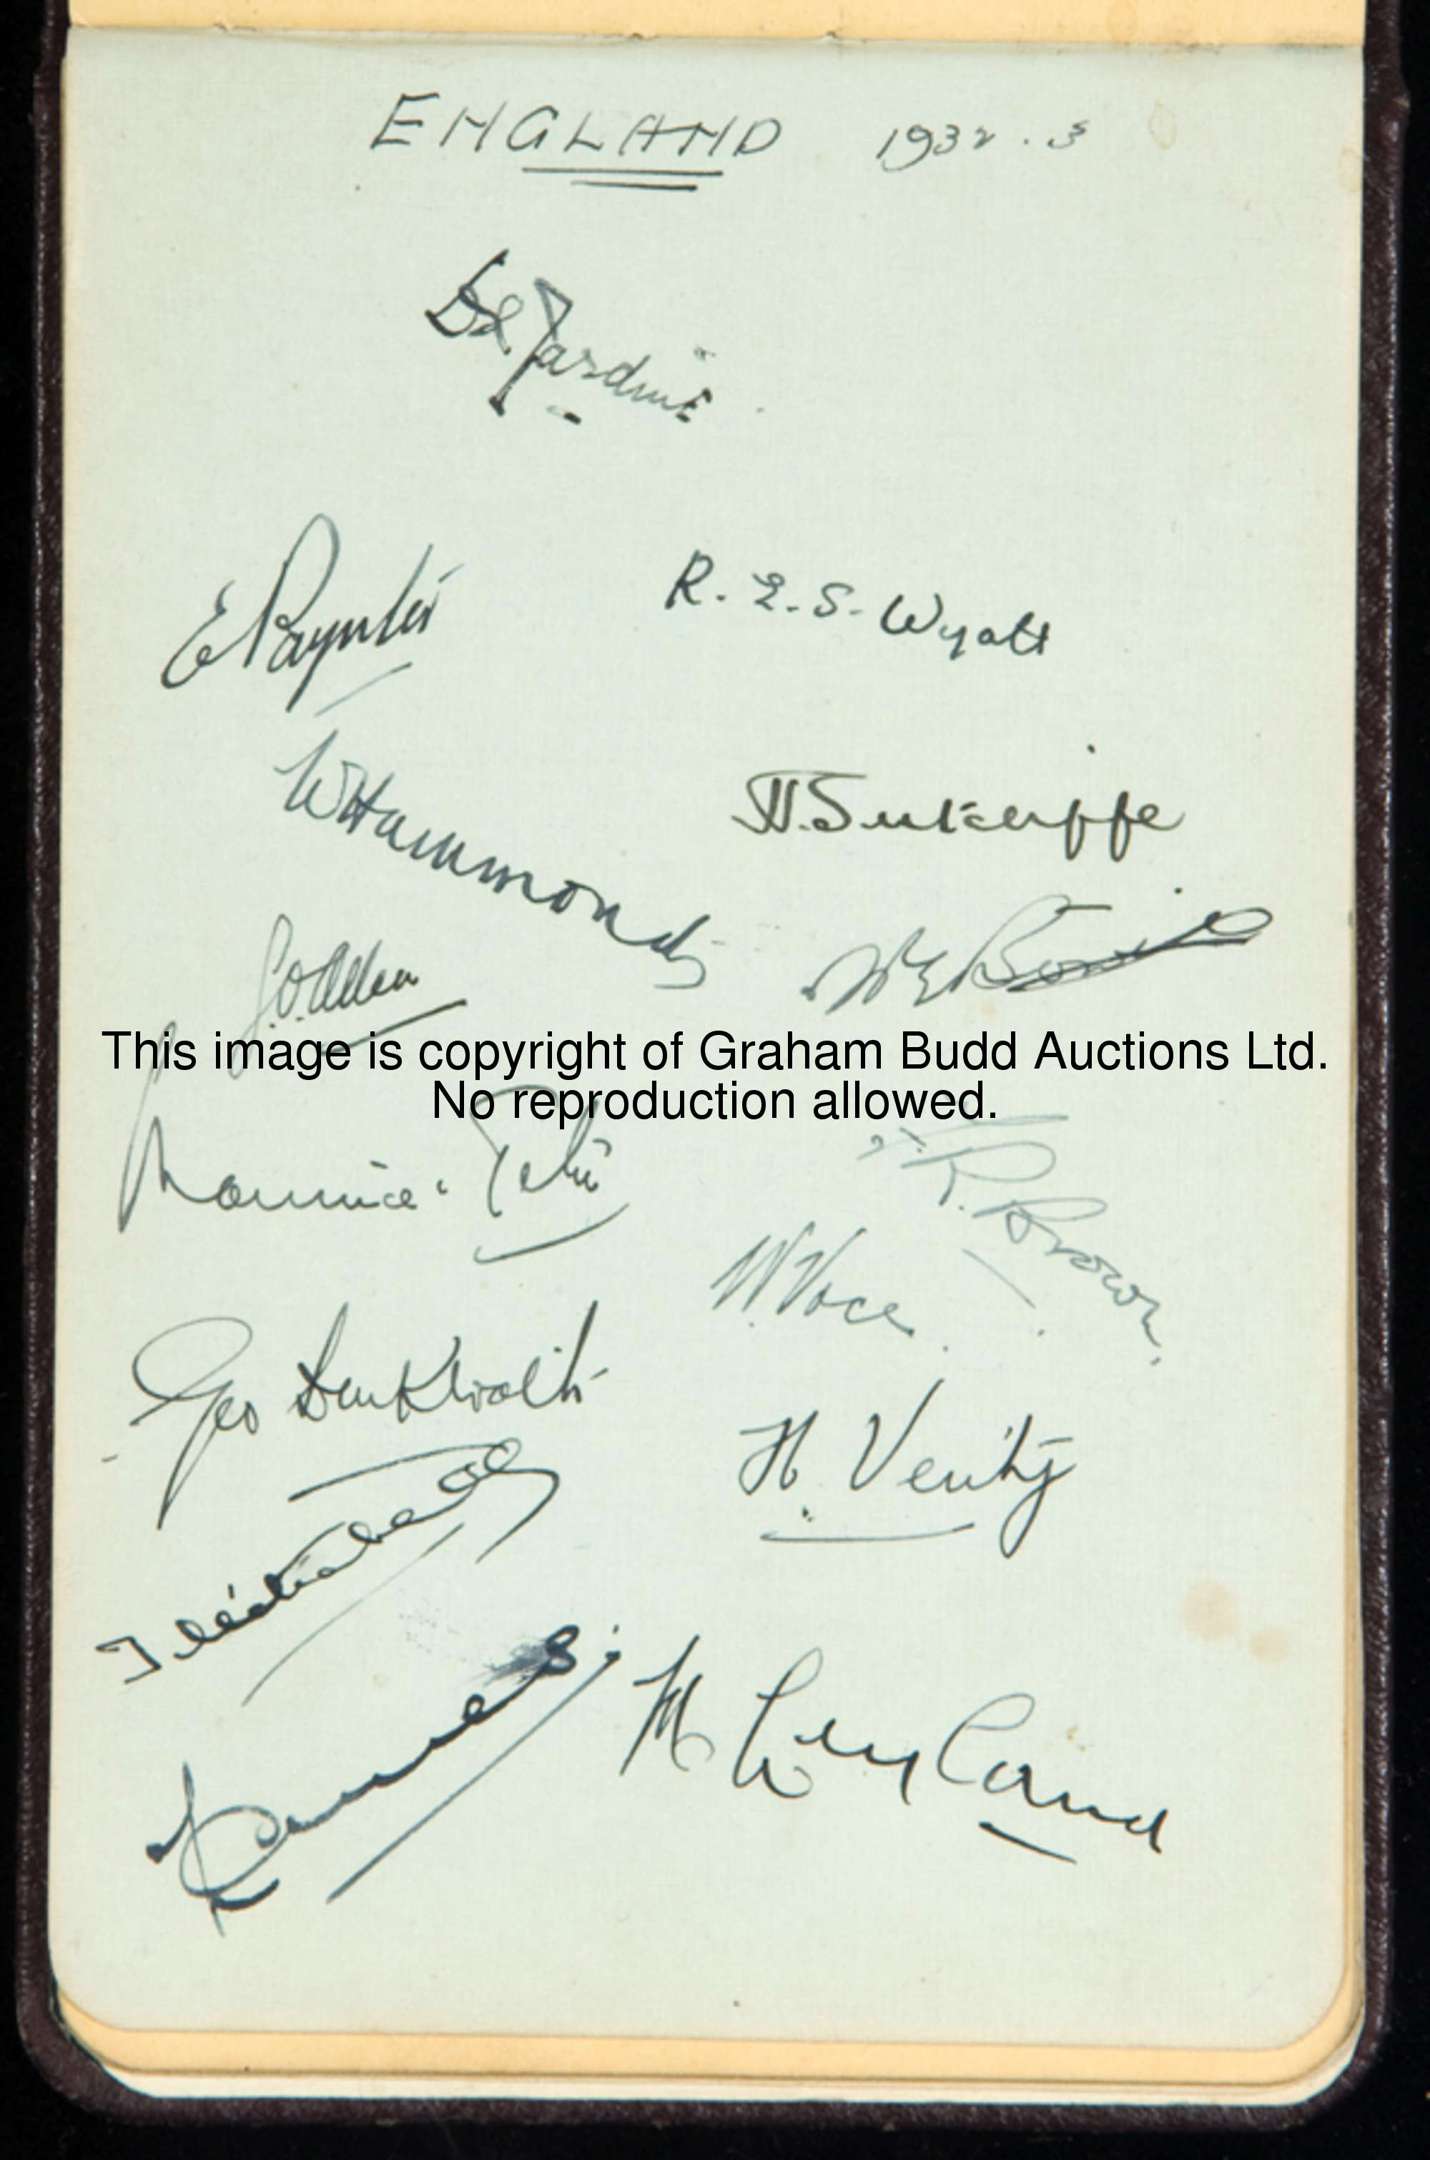 ENGLAND 1932.3
D.R. Jardine
E Paynter
R.E.S. Wyatt
W Hammond
H. Sutcliffe
G.O. Allen
W E Bowes
This image is copyright of Graham Budd Auctions Ltd.
No reproduction allowed.
Maurice Tate
F.R. Brown
W. Voce
Geo Duckworth
H. Verity
M Leyland